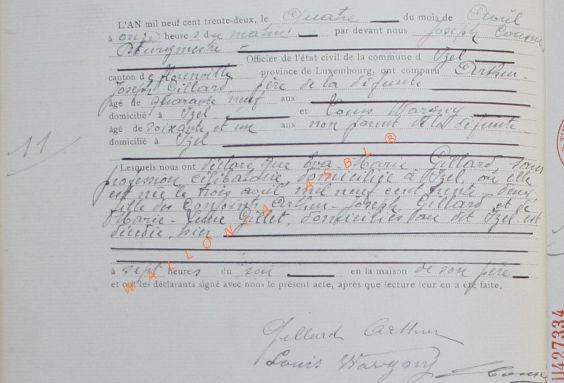 L'AN mil neuf cent trente-deux, le Quatre du mois de Août
à onze heures du matin par devant nous Joseph
Bourgmestre
Officier de l'état civil de la commune d'Izel
canton de Florenville province de Luxembourg, ont comparu Arthur-
Joseph Gillard, père de la défunte
âgé de quarante neuf ans
domicilié à Izel et Louis Wavgny
âgé de soixante et un ans non parent de la défunte
domicilié à Izel
11
Lesquels nous ont déclaré que Eva-Marie Gillard sans
profession célibataire domiciliée à Izel où elle
est née le trois août mil neuf cent trente-deux
fille des conjoints Arthur-Joseph Gillard et de
Marie- Gillet, domiciliés au dit Izel est
décédée hier
à sept heures du soir en la maison de son père
et ont les déclarants signé avec nous le présent acte, après que lecture leur en a été faite.
WALLONIA ASBL ®
Gillard Arthur
Louis
U427334